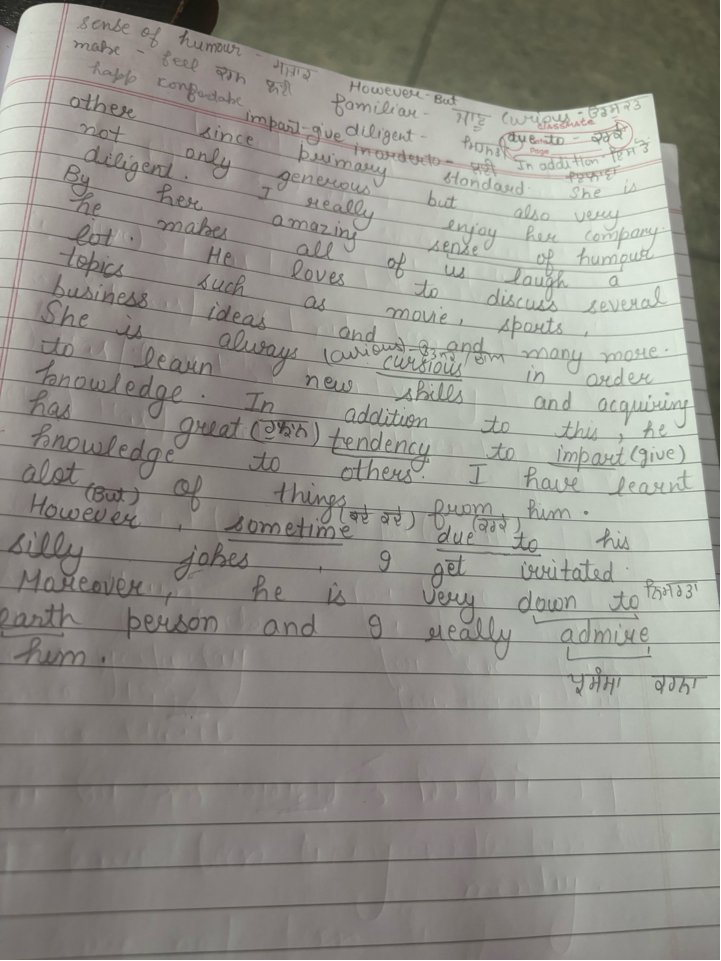 sense of humour - ਮਜ਼ਾਕ
make - feel ਕਰਨ ਲਈ However - But
happ confortabe familiar - ਜਾਣੂ Curious - ਉਤਸੁਕਤ
impart - give diligent - ਮਿਹਨਤੀ due to - ਕਰਕੇ
classmate
Date
Page
in order to - ਲਈ In addition - ਇਸਤੋਂ ਇਲਾਵਾ
other since primary standard. She is
not only generous but also very
diligent. I really enjoy her company.
By her amazing sense of humour
he makes all of us laugh a
lot. He loves to discuss several
topics such as movie, sports,
business ideas and and many more.
She is always (curious) - cursious in order
to learn new skills and acquiring
knowledge. In addition to this, he
has great (ਰੁਝਾਨ) tendency to impart (give)
knowledge to others. I have learnt
alot of things from him.
(But) (ਕਦੇ ਕਦੇ) (ਕਰਕੇ)
However, sometime due to his
silly jokes, I get irritated.
Moreover, he is very down to ਨਿਮਰਤਾ
earth person and I really admire
him.
ਪ੍ਰਸੰਸਾ ਕਰਨਾ